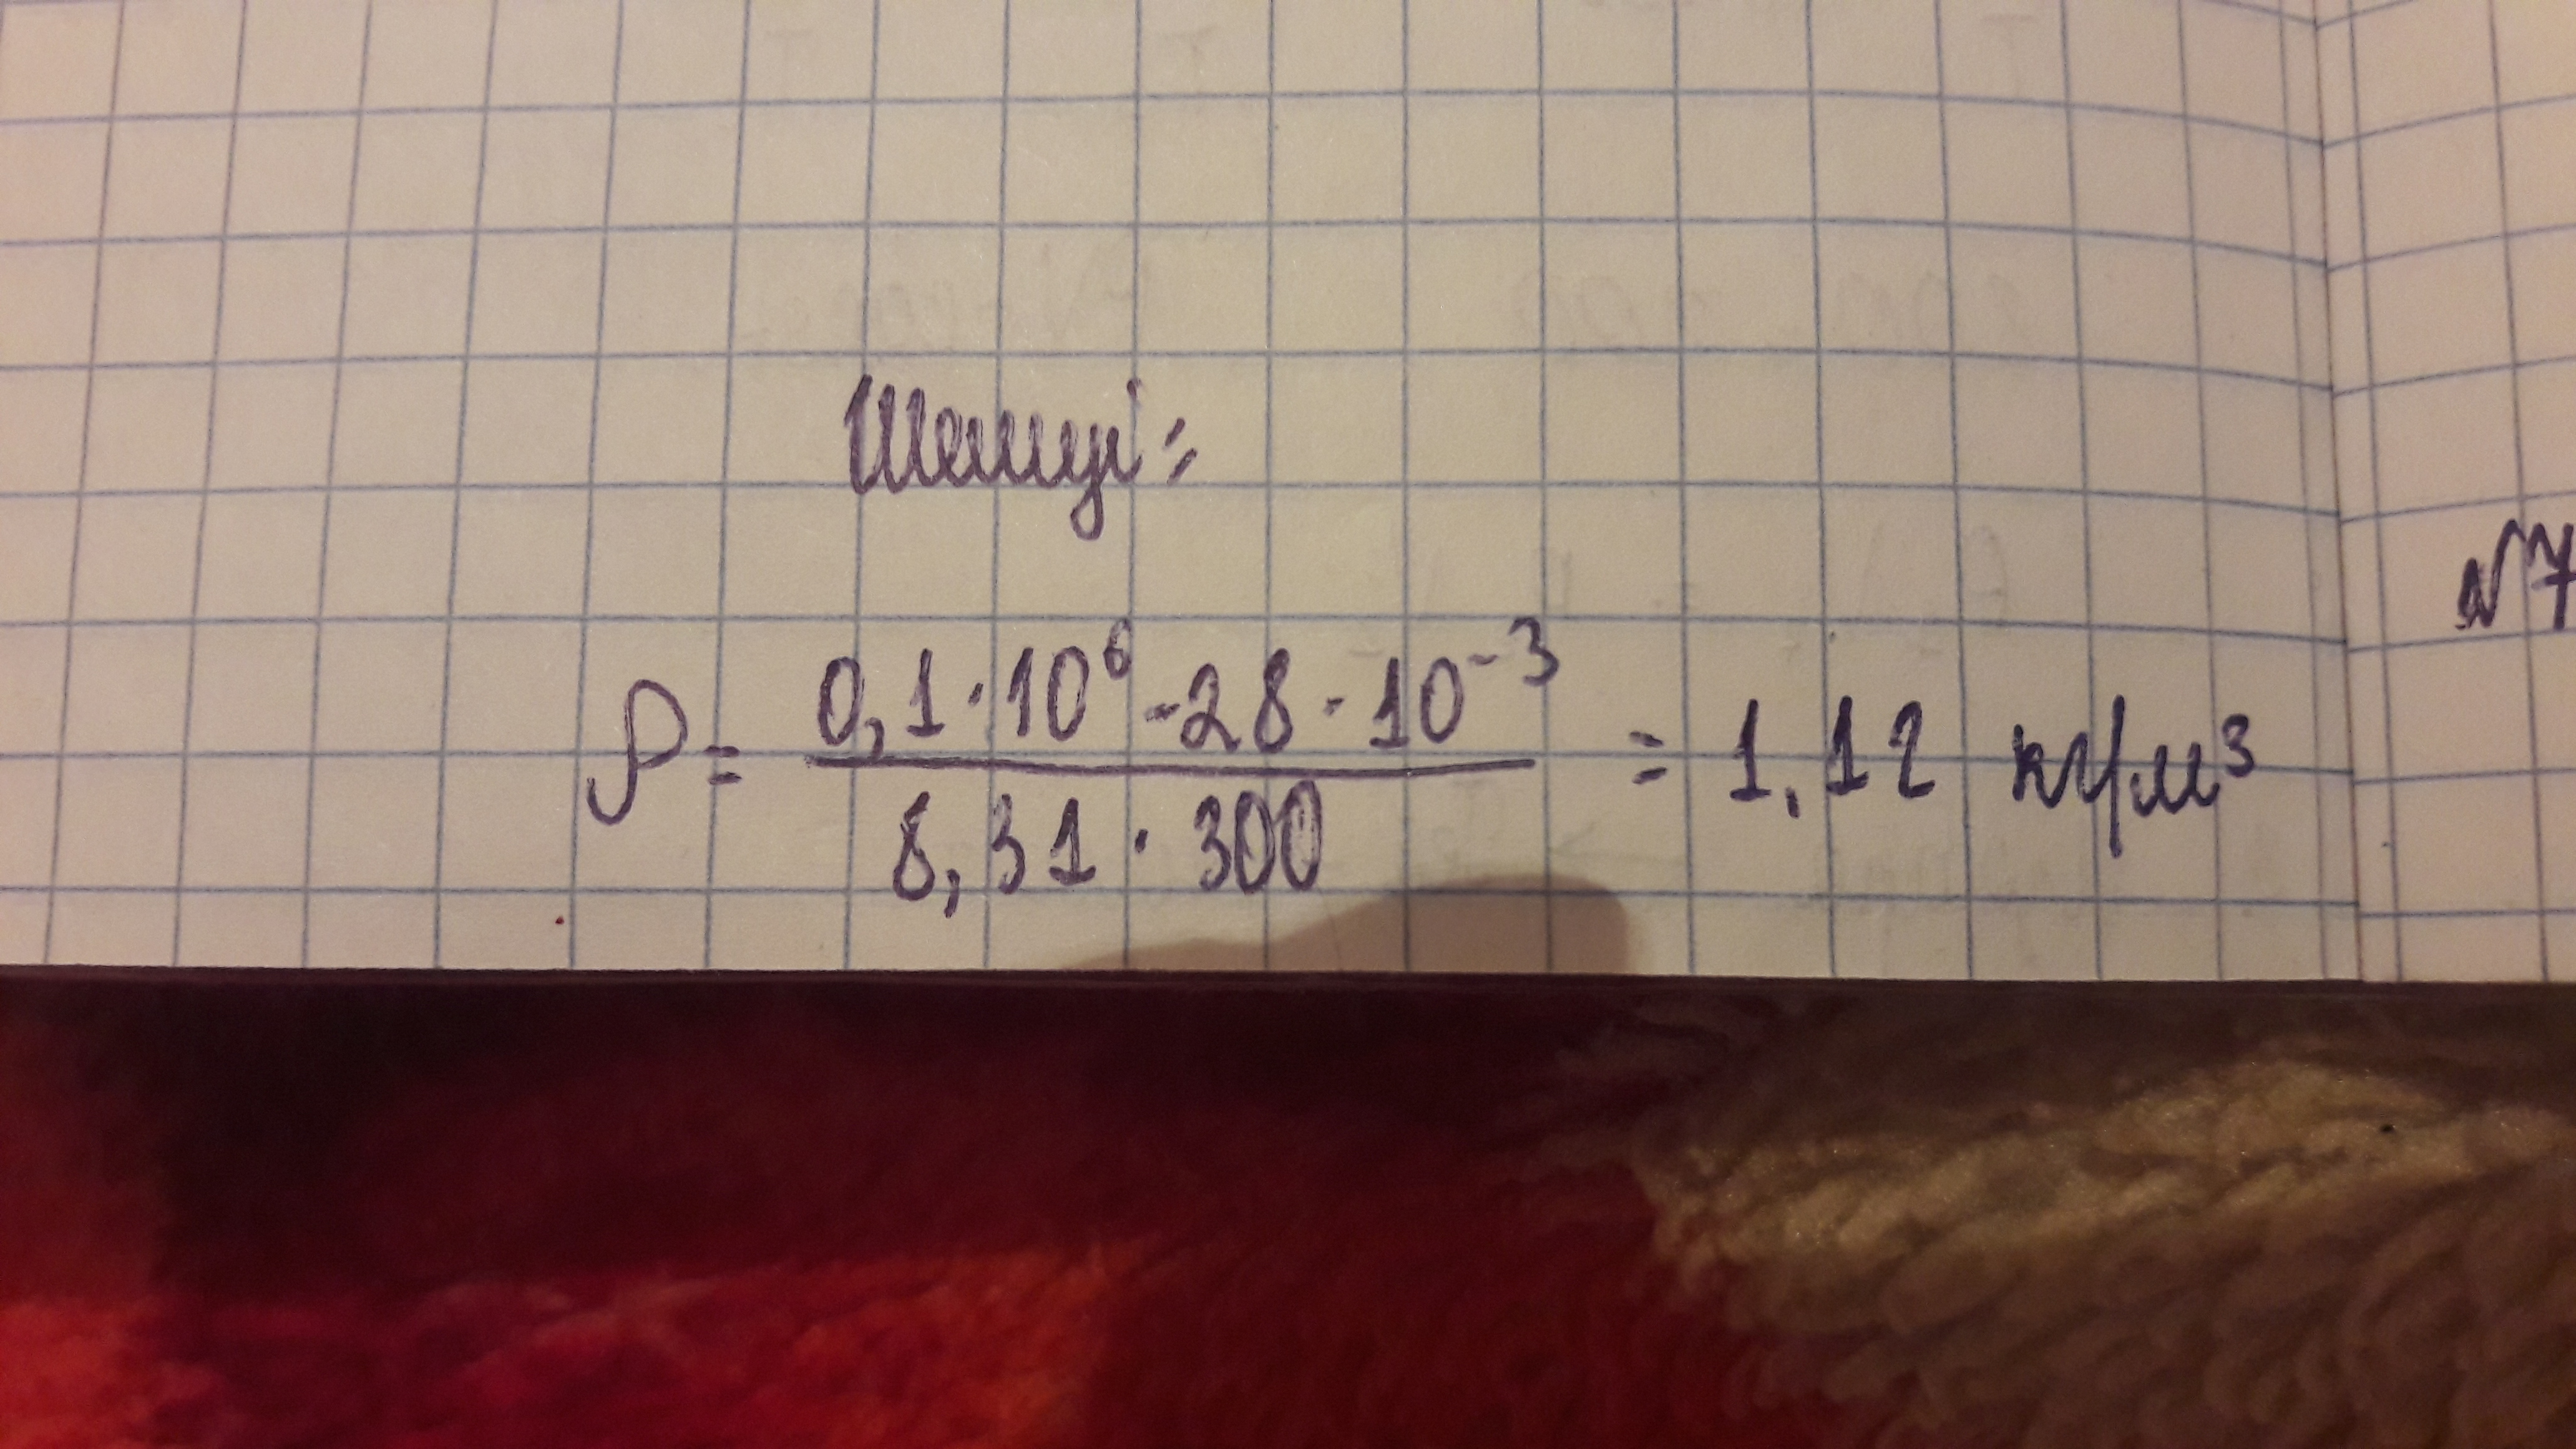 Шешуі:
ρ = 0,1·10⁶·28·10⁻³ / 8,31·300 = 1,12 кг/м³
№7